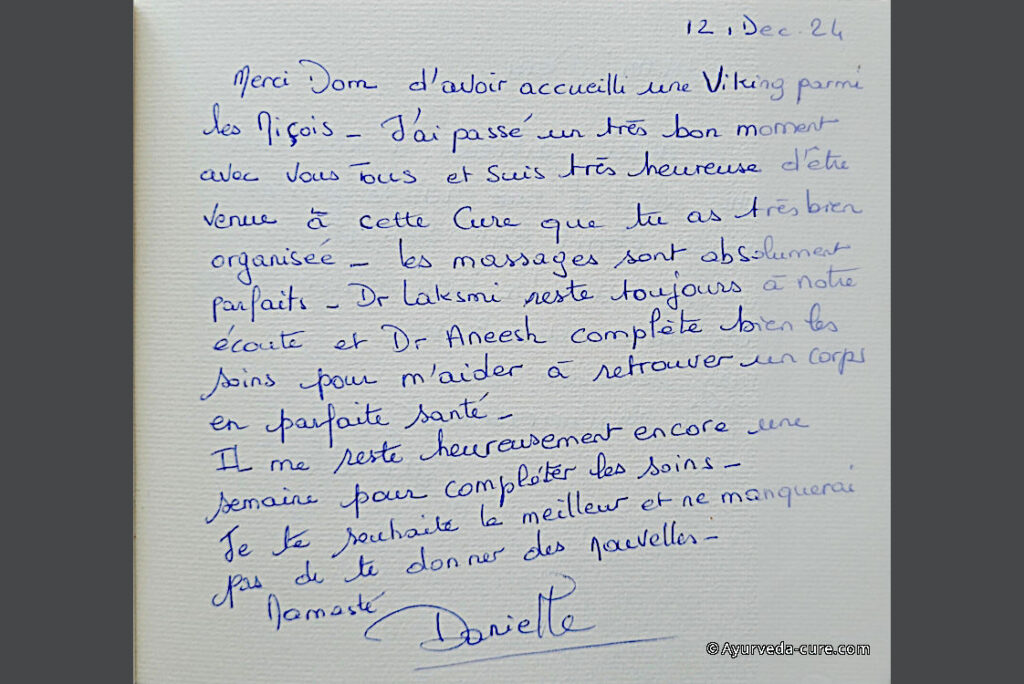 12, Dec. 24
Merci Dom d'avoir accueilli une Viking parmi
les Niçois - J'ai passé un très bon moment
avec vous Tous et suis très heureuse d'être
venue à cette Cure que tu as très bien
organisée - Les massages sont absolument
parfaits - Dr Laksmi reste toujours à notre
écoute et Dr Aneesh complète bien les
soins pour m'aider à retrouver un corps
en parfaite santé -
Il me reste heureusement encore une
semaine pour compléter les soins -
Je te souhaite le meilleur et ne manquerai
pas de te donner des nouvelles -
Namasté
Danielle
©Ayurveda-cure.com